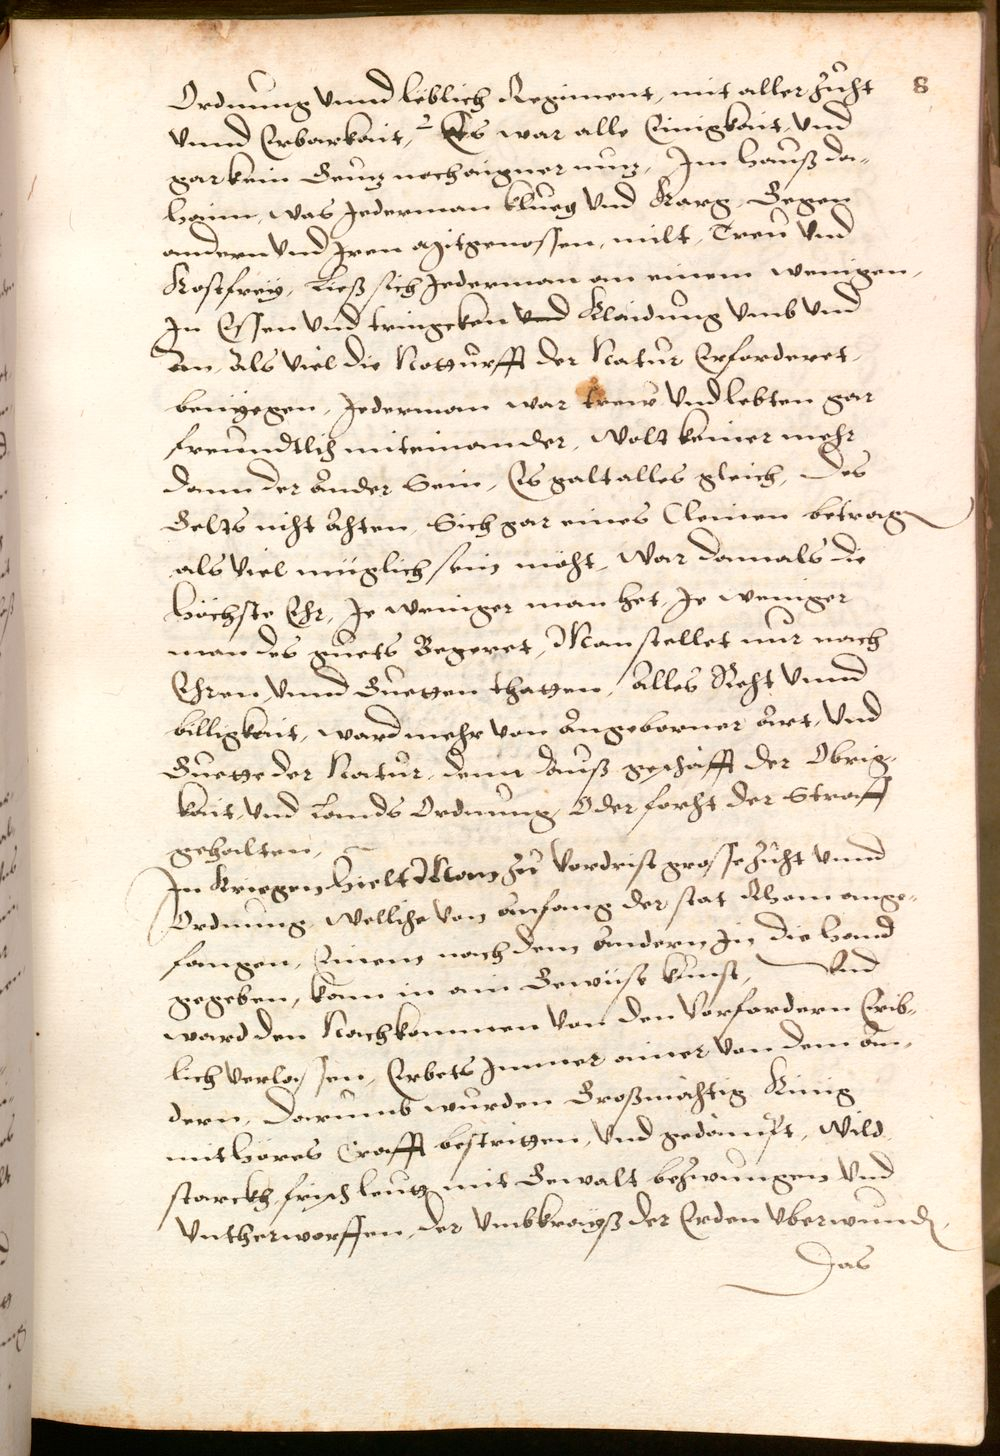 8
Ordnung vnnd leblich Regiment, mit aller Zucht
vnnd Erbarkait, Es war alle Einigkait, vnd
gar kein Geitz noch aigner nutz, Im hauß da-
haim, was Jederman klueg vnd Karg, Gegen
andern vnd Iren mitgenossen, milt, Treu vnd
Kostfreig, Ließ sich Jederman an einem wenigen,
In Essen vnd tringeken vnd Klaidung vmb vnd
an, als viel die Notturfft der Natur Erforderet,
beniegen, Jederman war trew vnd lebten gar
freundtlich miteinander, wolt keiner mehr
dann der ander Sein, Es galt alles gleich, des
Gelts nicht achten, Sich gar eines Cleinen betragen
als viel müglich sein möcht, war damals die
höchste Ehr, Je weniger man het, Je weniger
man des guets Begeret, Man stellet nur nach
Ehren vnnd Guetten thatten, alles Recht vnnd
billigkait, ward mehr von angeborner art, vnd
Guette der Natur, denn auß geschäfft der Obrig-
kait, vnd Lands Ordnung, Oder forcht der Straff
gehalten,
In Kriegen hielt Man zu vordrist grosse zucht vnnd
Ordnung, wellche von anfang der stat Rhom ange-
fangen, Einem nach dem andern in die hand
gegeben, kam in ain Gewise kunst, vnd
ward den Nachkommen von den Vorfordern Erib-
lich verlassen, Erbets Immer ainer von dem an-
dern, Darumb wurden Großmächtig Künig
mit höres Crafft bestritten, vnd gedämpft, wild
starckh frisch leutt mit Gewalt bezwungen vnd
vntherworffen, der vmbkrayß der Erden vberwunden,
Das